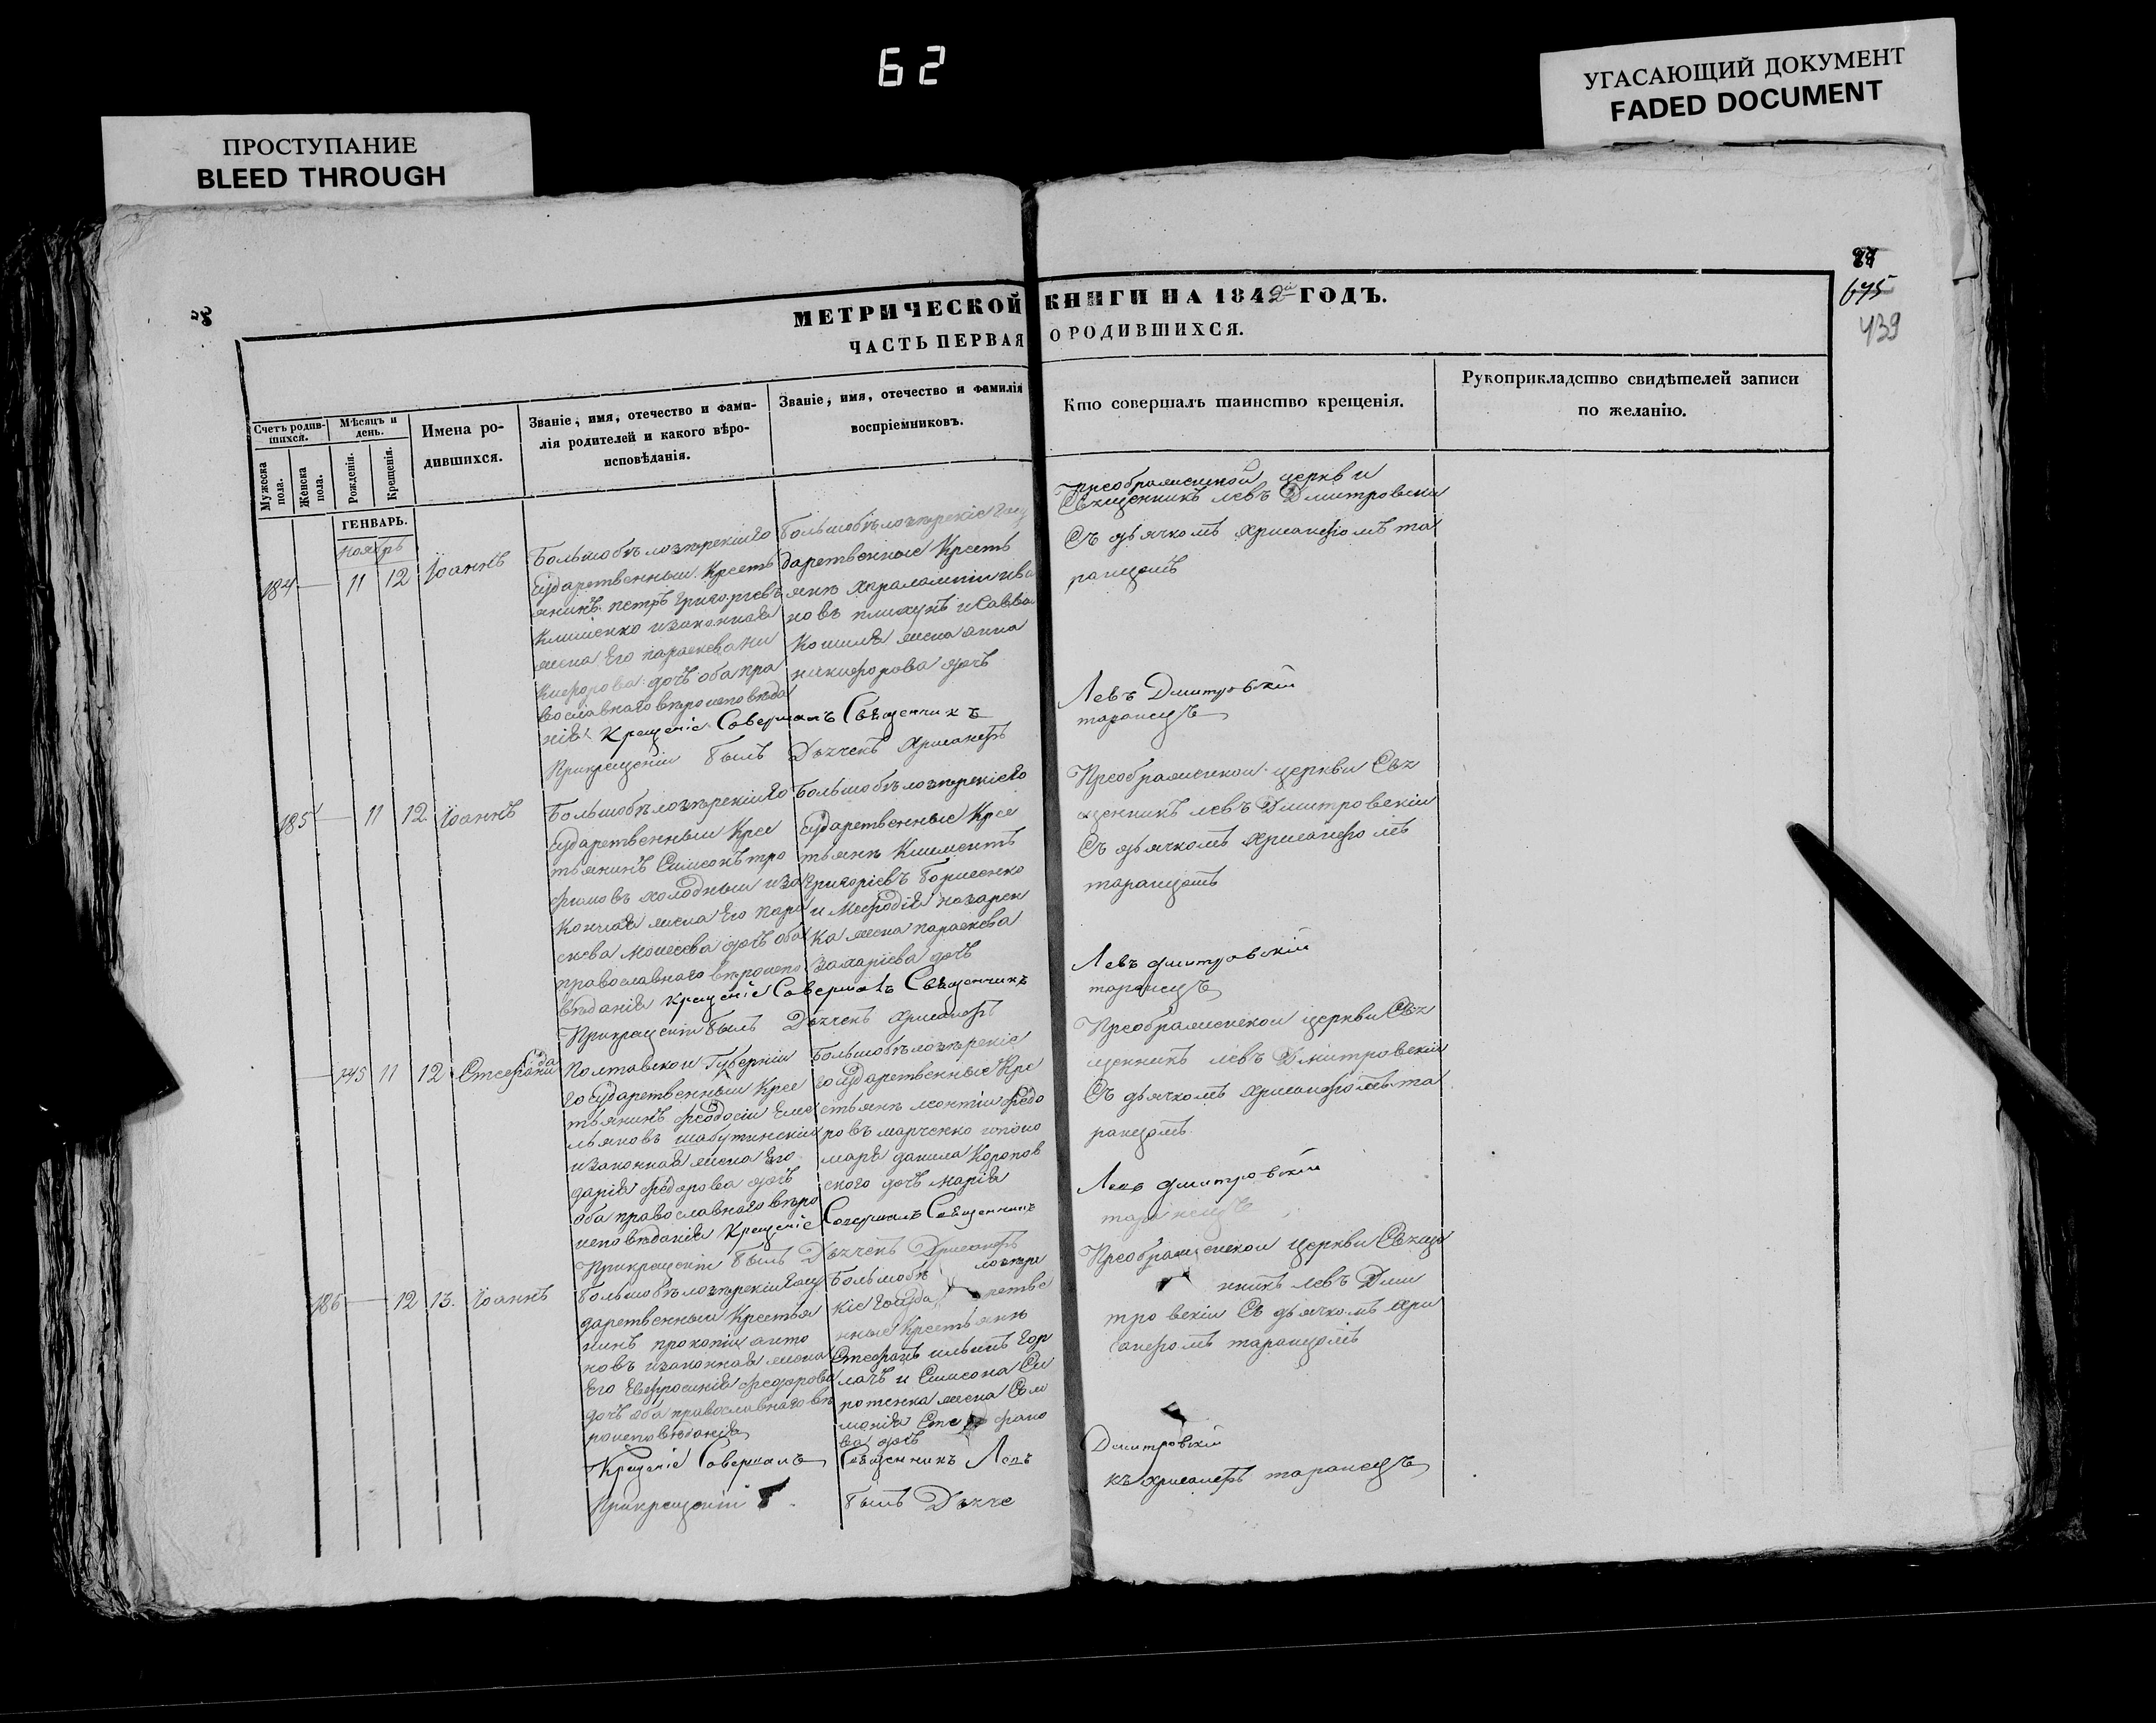 62
ПРОСТУПАНИЕ
BLEED THROUGH
УГАСАЮЩИЙ ДОКУМЕНТ
FADED DOCUMENT
675
439
МЕТРИЧЕСКОЙ КНИГИ НА 1842й ГОДЪ.
ЧАСТЬ ПЕРВАЯ О РОДИВШИХСЯ.
Счетъ родив-
шихся.
Мужеска
пола.
Женска
пола.
Мѣсяцъ и
день.
Рожденія.
Крещенія.
Имена ро-
дившихся.
Званіе, имя, отечество и фами-
лія родителей и какого вѣро-
исповѣданія.
Званіе, имя, отечество и фамилія
воспріемниковъ.
Кто совершалъ таинство крещенія.
Рукоприкладство свидѣтелей записи
по желанію.
ГЕНВАРЬ.
ноябрь
184 11 12 Іоаннъ
Большобѣлозерскій Го
сударственный Кресть
янинъ петръ григориевъ
Клименко изаконная
жена Его параскева Ни
кифорова дочь оба пра
вославнаго вѣроисповѣда
нія
Большобѣлозерскіе Госу
дарственные Кресть
яне Харалампій ива
новъ плихунъ и Савва
Кошиля жена анна
никифорова дочь
Крещеніе Совершалъ Священникъ
Прикрещеніи былъ Дьячекъ Хрисанфъ
Преображенской церкви
Священникъ левъ Дмитровскій
Съ дьячкомъ Хрисанфомъ та
ранцомъ
Левъ Дмитровскій
таранецъ
185 11 12 Іоаннъ
Большобѣлозерскій Го
сударственный Крес
тьянинъ Симеонъ тро
фимовъ холодный изо
Конная жена Его пара
скева Моисеева дочь оба
православнаго вѣроиспо
вѣданія
Большобѣлозерскіе Го
сударственные Крес
тьяне Климентъ
григоріевъ борисенко
и Мефодія назарен
ка жена параскева
Захаріева дочь
Крещеніе Совершалъ Священникъ
Прикрещеніи былъ Дьячекъ Хрисанфъ
Преображенской церкви Свя
щенникъ левъ Дмитровскій
Съ дьячкомъ Хрисанфомъ
таранцомъ
Левъ дмитровскій
таранецъ
145 11 12 Стефанида
Полтавской Губерніи
Государственный Крес
тьянинъ феодосій Еме
льяновъ шабутинскій
изаконная жена Его
дарія федорова дочь
оба православнаго вѣро
исповѣданія
Большобѣлозерскіе
Государственные Кре
стьяне леонтій федо
ровъ марченко ипоно
маря данила Коропов
ского дочь марія
Крещеніе Совершалъ Священникъ
Прикрещеніи былъ Дьячекъ Хрисанфъ
Преображенской церкви Свя
щенникъ левъ Дмитровскій
Съ дьячкомъ Хрисанфомъ та
ранцомъ
Левъ дмитровскій
таранецъ
186 12 13. Іоаннъ
Большобѣлозерскій Госу
дарственный Крестья
нинъ прокопій анто
новъ изаконная жена
Его Евфросинія феодорова
дочь оба православнаго вѣ
роисповѣданія
Большобѣ лозер
скіе Госуда рстве
нные Крестьяне
Стефанъ ильинъ Гор
лачъ и Симеона Си
ротенка жена Соло
монія Сте фано
ва дочь
Крещеніе Совершалъ Священникъ Левъ
Прикрещеніи былъ Дьяче
Преображенской церкви Свяще
нникъ левъ Дми
тровскій Съ дьячкомъ Хри
санфомъ таранцомъ
Дмитровскій
къ Хрисанфъ таранецъ